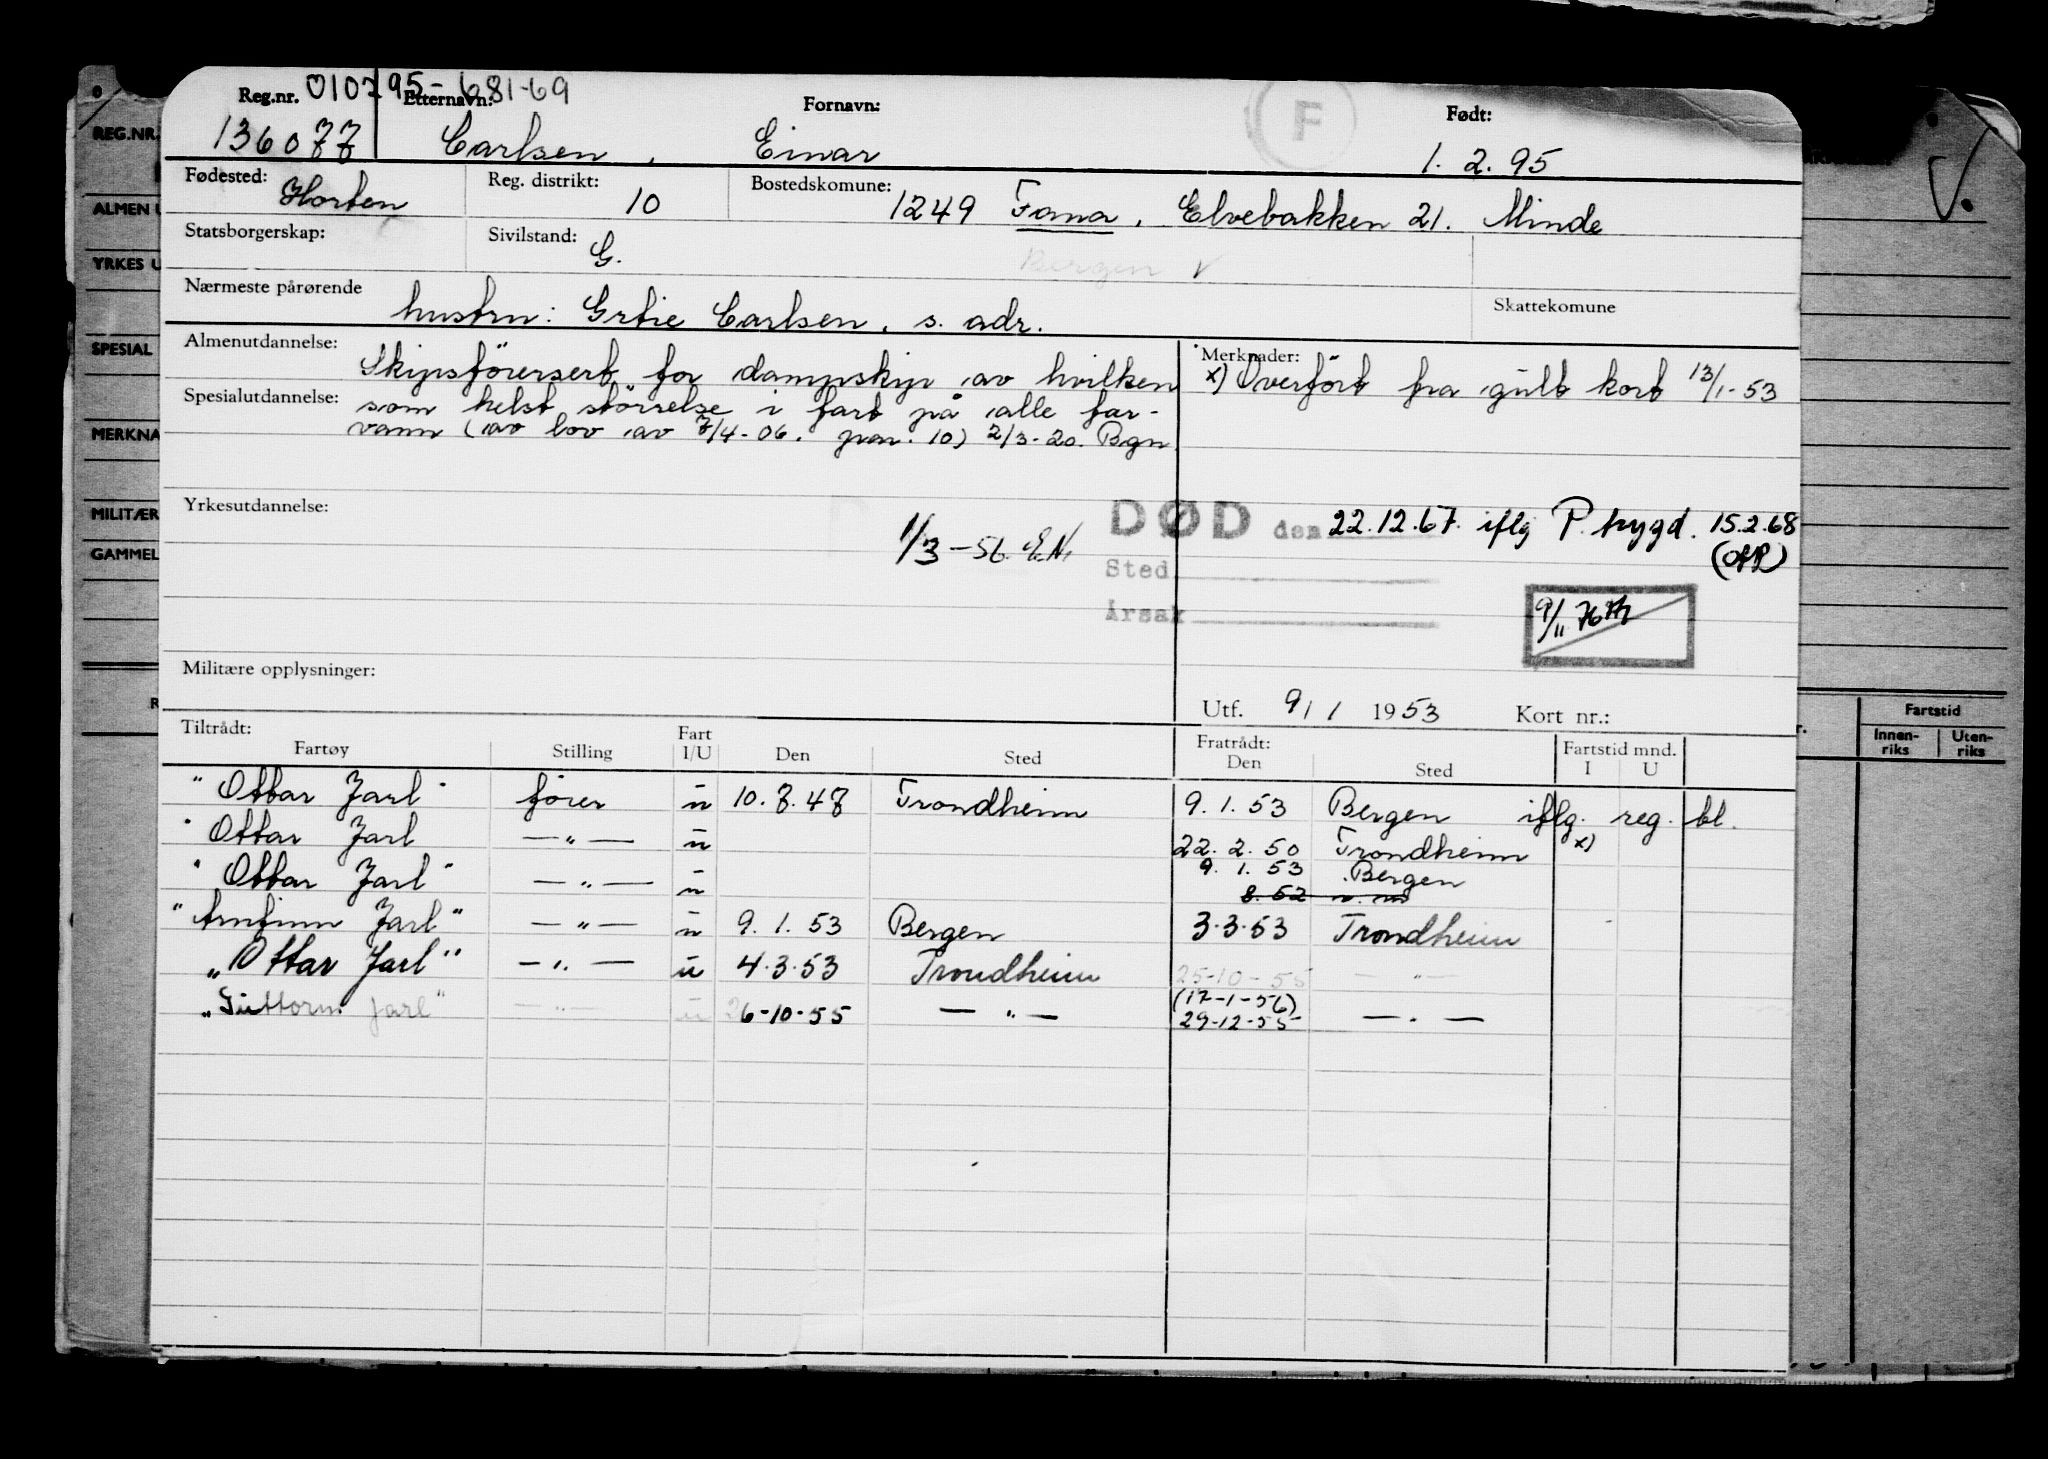 Reg.nr. 010795-68169
Etternavn: Fornavn: Født:
136077 Carlsen, Einar 1. 2. 95
F
Fødested: Horten Reg. distrikt: 10 Bostedskomune: 1249 Fana, Elvebakken 21. Minde
Statsborgerskap: Sivilstand: G. Bergen
Nærmeste pårørende hustru: Grtie Carlsen, s. adr. Skattekomune
Almenutdannelse: Skipsförersert for dampskip av hvilken
Spesialutdannelse: som helst störrelse i fart på alle far-
vann (av lov av 7/4-06. par. 10) 2/3-20. Bgn.
Merknader:
x) Överfört fra gult kort 13/1-53
Yrkesutdannelse:
1/3-56 E.N.
DØD den 22.12.67. iflg P. trygd. 15.2.68
Sted
Årsak
9/11 76
Militære opplysninger:
Utf. 9/1 1953 Kort nr.:
Tiltrådt: Fratrådt: Fartstid mnd.
Fartøy Stilling Fart I/U Den Sted Den Sted I U
"Ottar Jarl" förer u 10.7.47 Trondheim 9.1.53 Bergen iflg. reg. bl.
"Ottar Jarl —"— u 22.2.50 Trondheim x)
"Ottar Jarl" —"— u 9.1.53 Bergen
8.52
"Arnfinn Jarl" —"— u 9.1.53 Bergen 3.3.53 Trondheim
"Ottar Jarl" —"— u 4.3.53 Trondheim 25-10-55 —"—
"Guttorm Jarl" —"— u 26-10-55 —"— (17-1-56)
29-12-55 —"—
REG.NR.
ALMEN U
YRKES U
SPESIAL
MERKNA
MILITÆR
GAMMEL
Fartstid
Innen-
riks
Uten-
riks